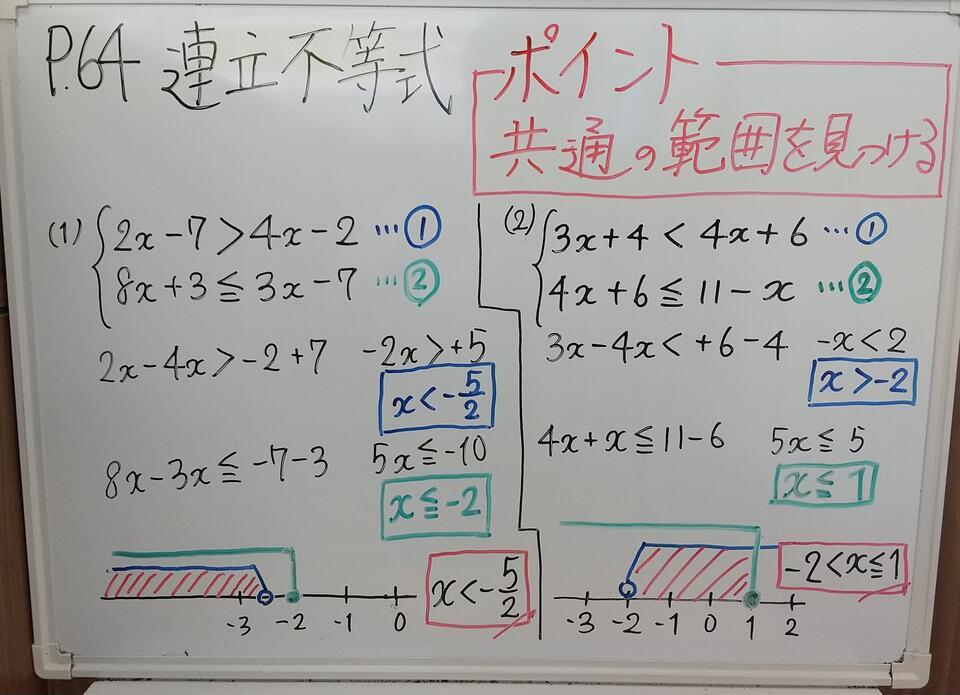 P.64 連立不等式
ポイント
共通の範囲を見つける
(1) 2x-7>4x-2 …①
8x+3≦3x-7 …②
2x-4x>-2+7 -2x>+5
x<-5/2
8x-3x≦-7-3 5x≦-10
x≦-2
-3 -2 -1 0
x<-5/2
(2) 3x+4<4x+6 …①
4x+6≦11-x …②
3x-4x<+6-4 -x<2
x>-2
4x+x≦11-6 5x≦5
x≦1
-2<x≦1
-3 -2 -1 0 1 2